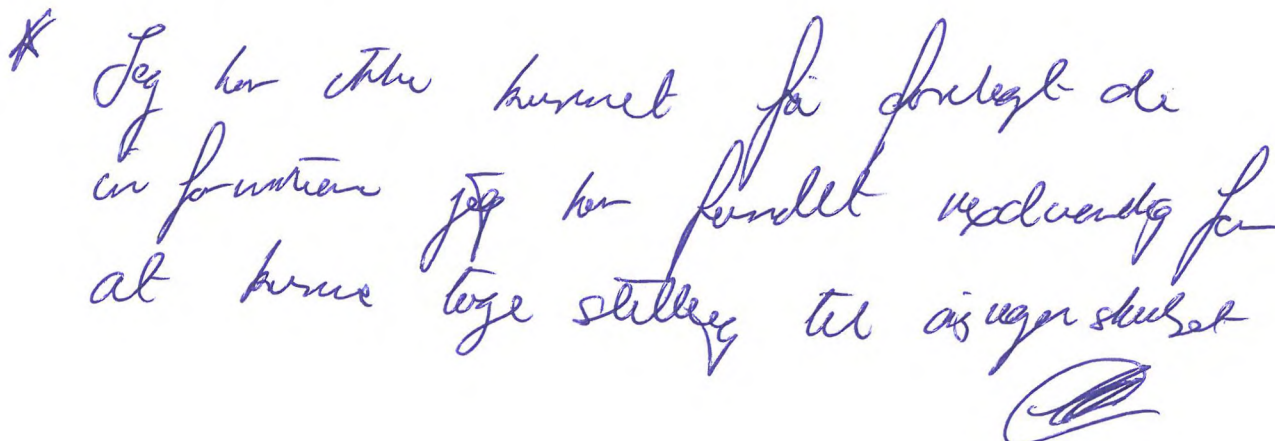 * Jeg har ikke kunnet få forelagt de
informationer jeg har fundet nødvendig for
at kunne tage stilling til årsregnskabet